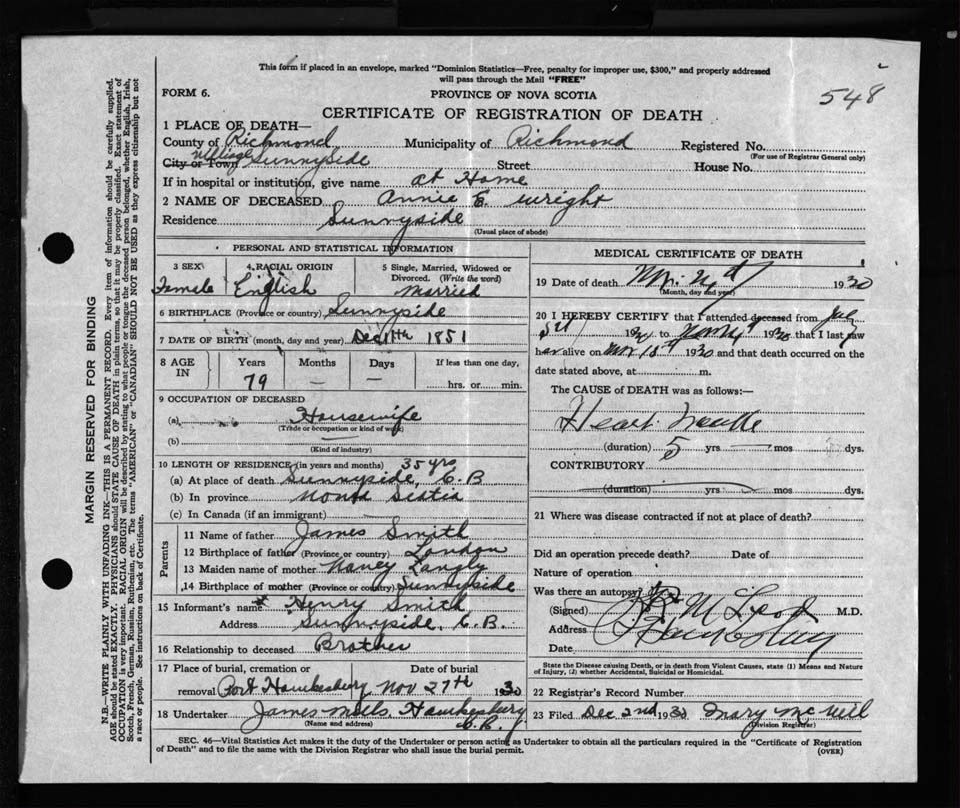 This form if placed in an envelope, marked "Dominion Statistics—Free, penalty for improper use, $300," and properly addressed
will pass through the Mail "FREE"
FORM 6.
PROVINCE OF NOVA SCOTIA
548
CERTIFICATE OF REGISTRATION OF DEATH
1 PLACE OF DEATH—
County of Richmond Municipality of Richmond Registered No.
(For use of Registrar General only)
Village
City or Town Sunnyside Street House No.
If in hospital or institution, give name at Home
2 NAME OF DECEASED Annie E. Wright
Residence Sunnyside
(Usual place of abode)
PERSONAL AND STATISTICAL INFORMATION
3 SEX 4 RACIAL ORIGIN 5 Single, Married, Widowed or Divorced. (Write the word)
Female English Married
6 BIRTHPLACE (Province or country) Sunnyside
7 DATE OF BIRTH (month, day and year) Dec 11th 1851
8 AGE IN Years Months Days If less than one day,
79 — — hrs. or min.
9 OCCUPATION OF DECEASED
(a) Housewife
(Trade or occupation or kind of work)
(b) —
(Kind of industry)
10 LENGTH OF RESIDENCE (in years and months) 35 yrs
(a) At place of death Sunnyside, C.B
(b) In province Nova Scotia
(c) In Canada (if an immigrant)
Parents
11 Name of father James Smith
12 Birthplace of father (Province or country) London
13 Maiden name of mother Nancy Langly
14 Birthplace of mother (Province or country) Sunnyside
15 Informant's name Henry Smith
Address Sunnyside, C.B.
16 Relationship to deceased Brother
17 Place of burial, cremation or Date of burial
removal Port Hawkesbury Nov 27th 1930
18 Undertaker James Mills, Hawkesbury
(Name and address) C.B.
MEDICAL CERTIFICATE OF DEATH
19 Date of death 1930
(Month, day and year)
20 I HEREBY CERTIFY that I attended deceased from July
192 to 1930 that I last saw
her alive on 1930 and that death occurred on the
date stated above, at m.
The CAUSE of DEATH was as follows:—
Heart trouble
(duration) 5 yrs mos dys.
CONTRIBUTORY
(duration) yrs mos dys.
21 Where was disease contracted if not at place of death?
Did an operation precede death? Date of
Nature of operation
Was there an autopsy?
(Signed) McLeod M.D.
Address
Date
State the Disease causing Death, or in death from Violent Causes, state (1) Means and Nature
of Injury, (2) whether Accidental, Suicidal or Homicidal.
22 Registrar's Record Number
23 Filed Dec 2nd 1930 Mary McNeil
(Division Registrar)
SEC. 46—Vital Statistics Act makes it the duty of the Undertaker or person acting as Undertaker to obtain all the particulars required in the "Certificate of Registration
of Death" and to file the same with the Division Registrar who shall issue the burial permit.
(OVER)
MARGIN RESERVED FOR BINDING
N.B.—WRITE PLAINLY WITH UNFADING INK—THIS IS A PERMANENT RECORD. Every item of information should be carefully supplied.
AGE should be stated EXACTLY. PHYSICIANS should STATE CAUSE OF DEATH in plain terms, so that it may be properly classified. Exact statement of
OCCUPATION is very important. RACIAL ORIGIN will be described by stating to what people or tongue the deceased person belonged, whether English, Irish,
Scotch, French, German, Russian, Ruthenian, etc. The terms "AMERICAN" or "CANADIAN" SHOULD NOT BE USED as they express citizenship but not
a race or people. See instructions on back of Certificate.